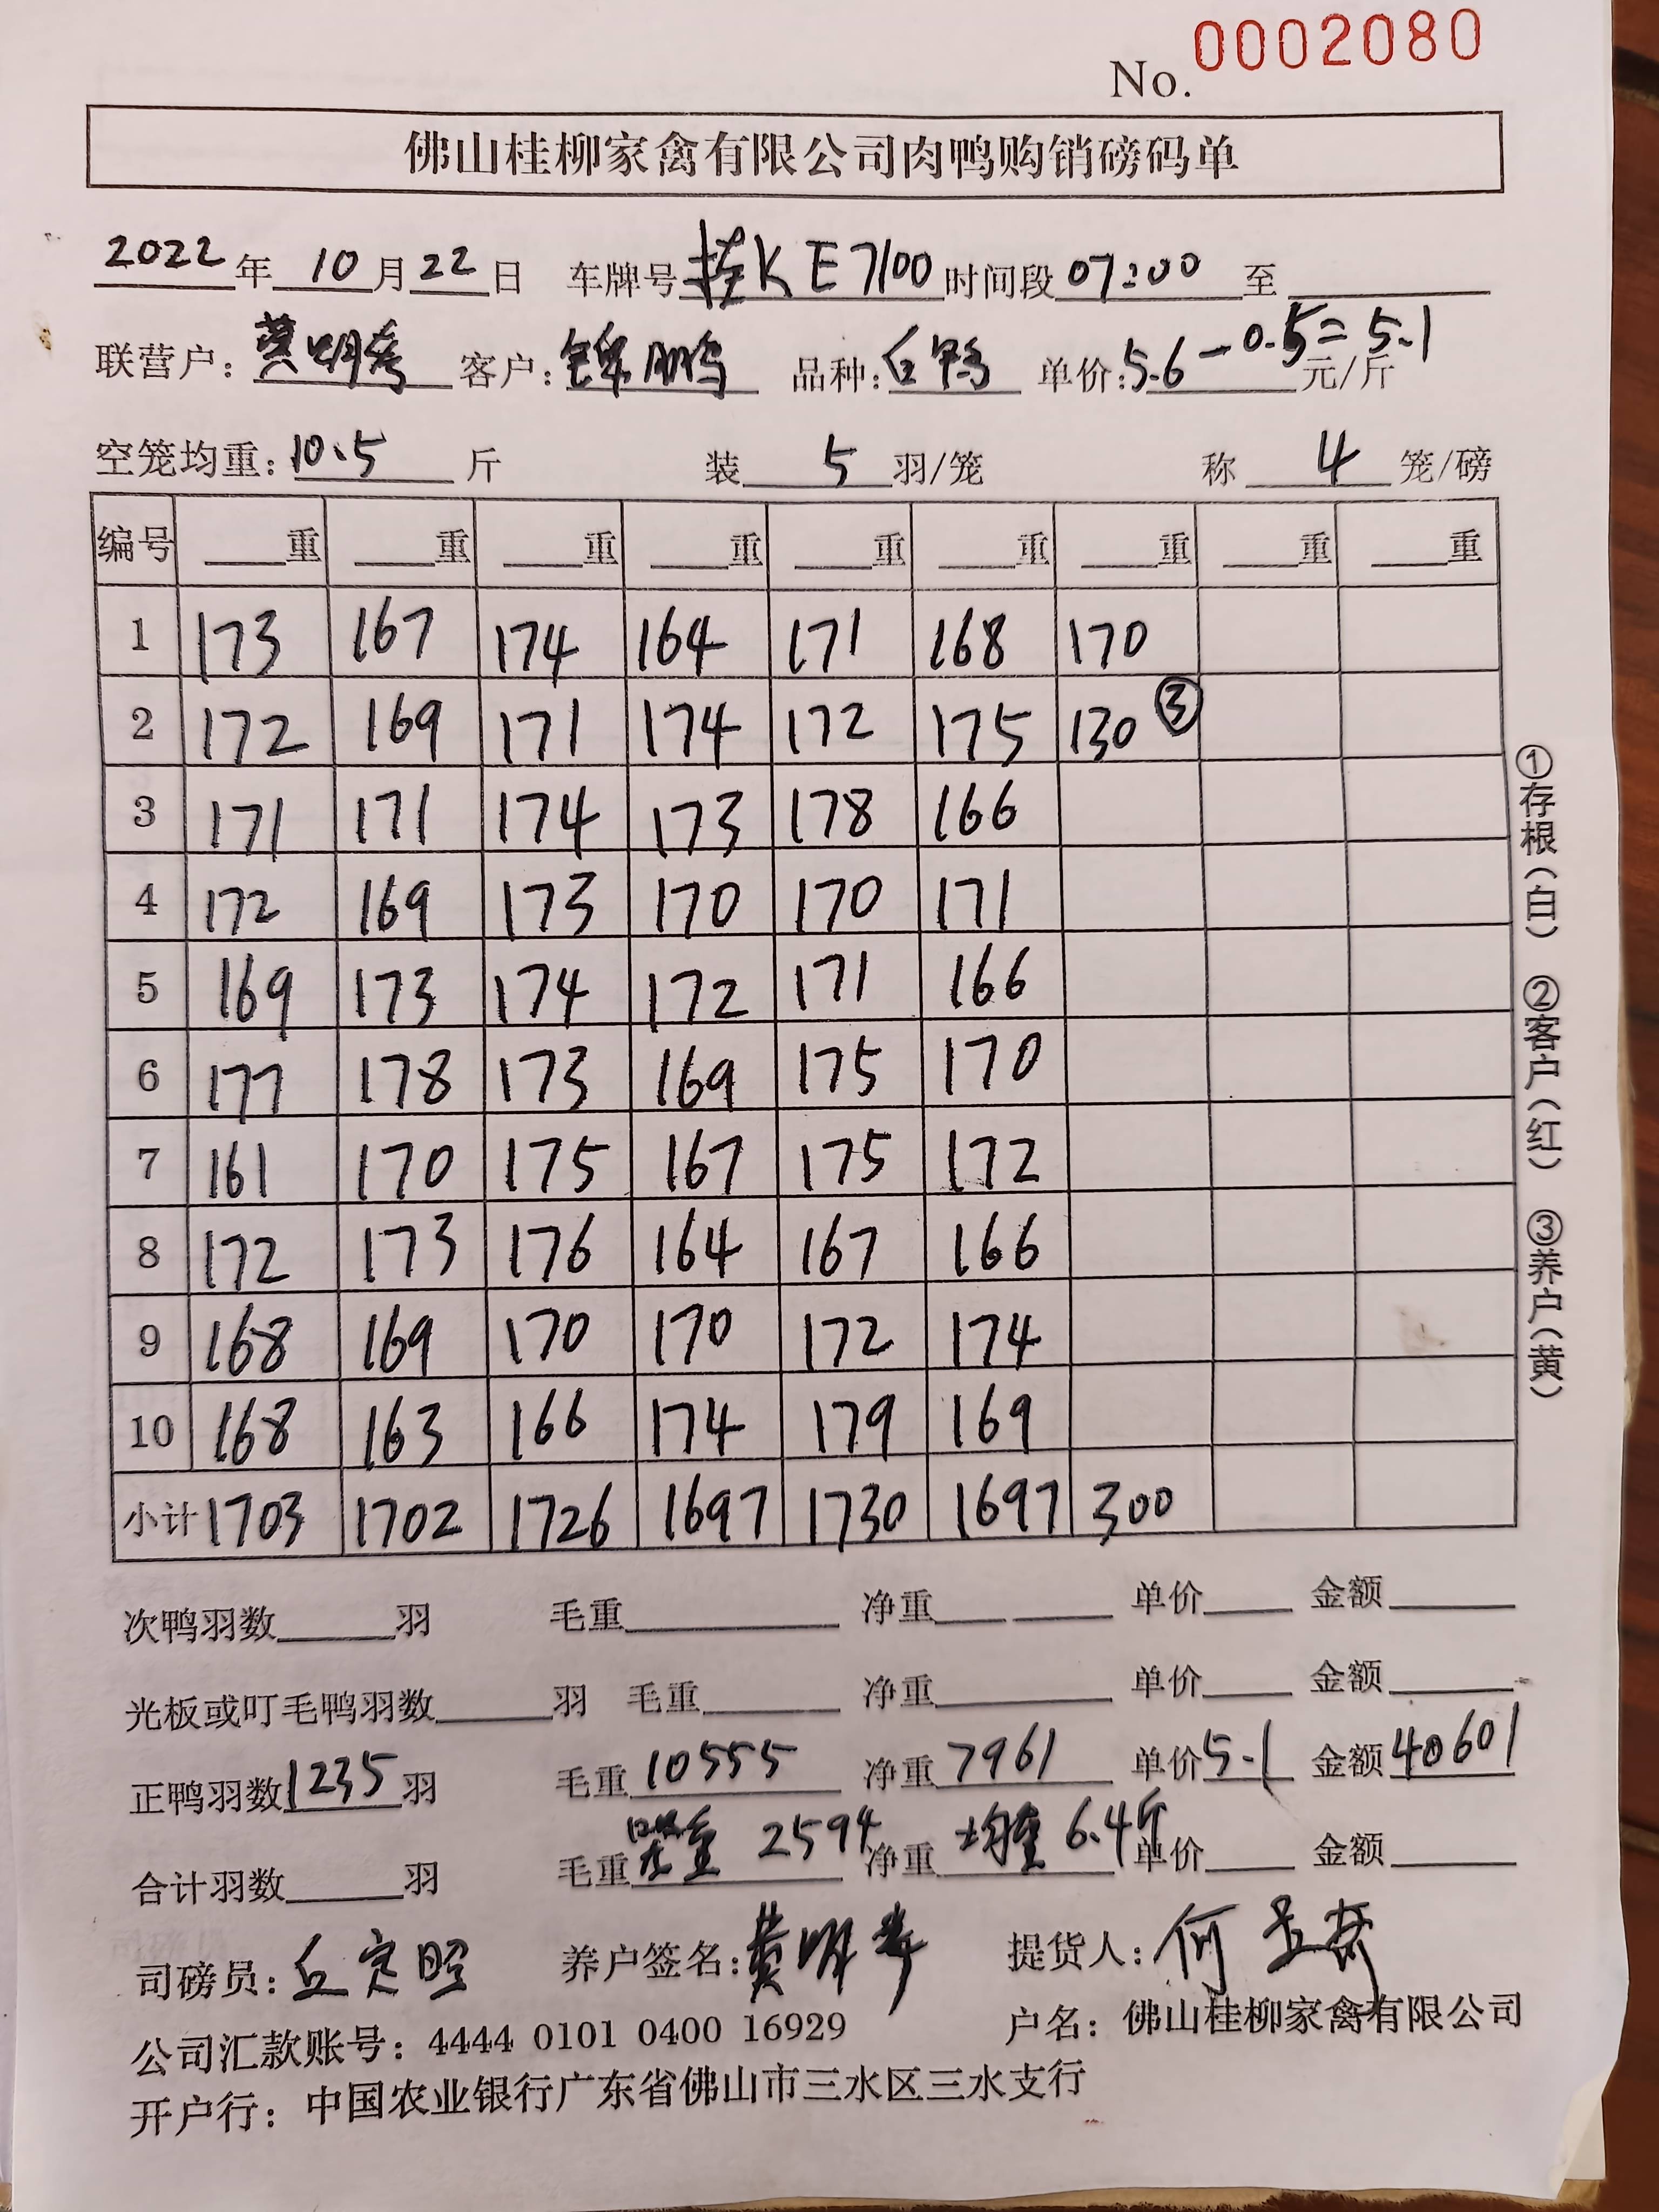 No. 0002080
佛山桂柳家禽有限公司肉鸭购销磅码单
2022年 10月22日 车牌号 桂K E7100 时间段 07:00 至
联营户: 黄明 客户: 锦鹏 品种: 白鸭 单价: 5.6-0.5=5.1 元/斤
空笼均重: 10.5 斤 装 5 羽/笼 称 4 笼/磅
编号 重 重 重 重 重 重 重 重 重
1 173 167 174 164 171 168 170
2 172 169 171 174 172 175 130 ③
3 171 171 174 173 178 166
4 172 169 173 170 170 171
5 169 173 174 172 171 166
6 177 178 173 169 175 170
7 161 170 175 167 175 172
8 172 173 176 164 167 166
9 168 169 170 170 172 174
10 168 163 166 174 179 169
小计 1703 1702 1726 1697 1730 1697 300
①存根(白) ②客户(红) ③养户(黄)
次鸭羽数 羽 毛重 净重 单价 金额
光板或叮毛鸭羽数 羽 毛重 净重 单价 金额
正鸭羽数 1235 羽 毛重 10555 净重 7961 单价 5.1 金额 40601
合计羽数 羽 毛重 罡重 2594 净重 均重 6.4斤 单价 金额
司磅员: 丘定昭 养户签名: 黄明 提货人: 何
公司汇款账号: 4444 0101 0400 16929 户名: 佛山桂柳家禽有限公司
开户行: 中国农业银行广东省佛山市三水区三水支行